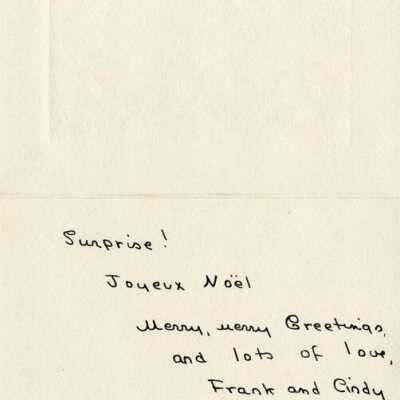 Surprise!
Joyeux Noël
Merry, merry Greetings,
and lots of love,
Frank and Cindy